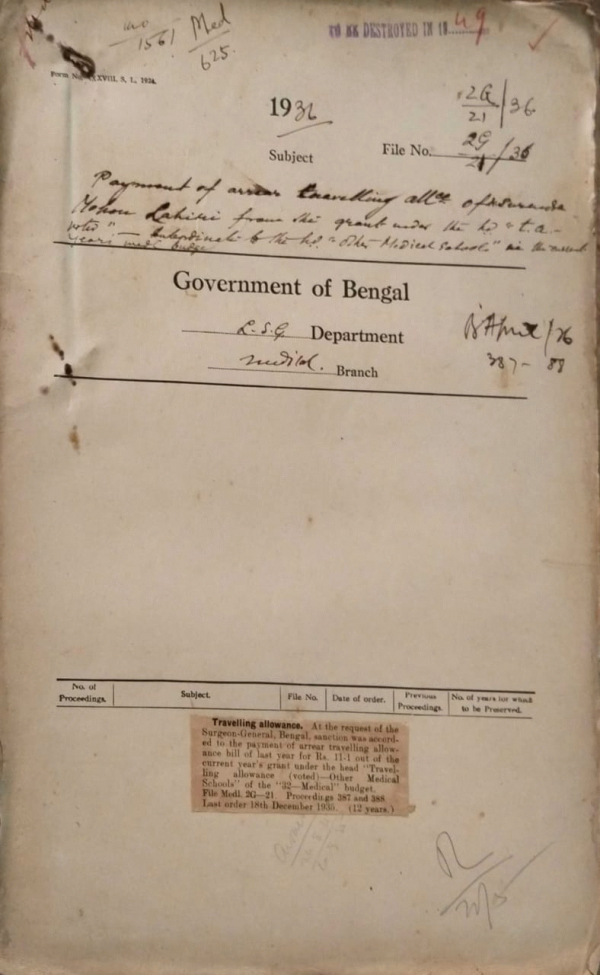 1561 Med
625.
TO BE DESTROYED IN 19 49
Form No. XXVIII, S. I., 1924.
1936
2G/21/36
Subject
File No. 2G/21/36
Payment of arrear travelling allce of Surendra
Mohon Lahiri from the grant under the hd "t.a.-
voted" — subordinate to the hd. "Other Medical Schools" in the current
years medl budget
Government of Bengal
L.S.G Department
B April/36
Medical. Branch
387-88
No. of Proceedings. Subject. File No. Date of order. Previous Proceedings. No. of years for which to be Preserved.
Travelling allowance. At the request of the
Surgeon-General, Bengal, sanction was accord-
ed to the payment of arrear travelling allow-
ance bill of last year for Rs. 11-1 out of the
current year's grant under the head "Travel-
ling allowance (voted)—Other Medical
Schools" of the "32—Medical" budget.
File Medl. 2G—21 Proceedings 387 and 388
Last order 18th December 1935. (12 years.)